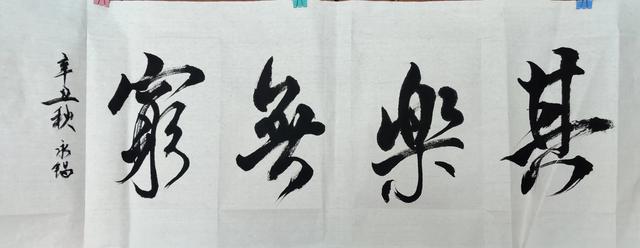 其樂無窮
辛丑秋 永錫